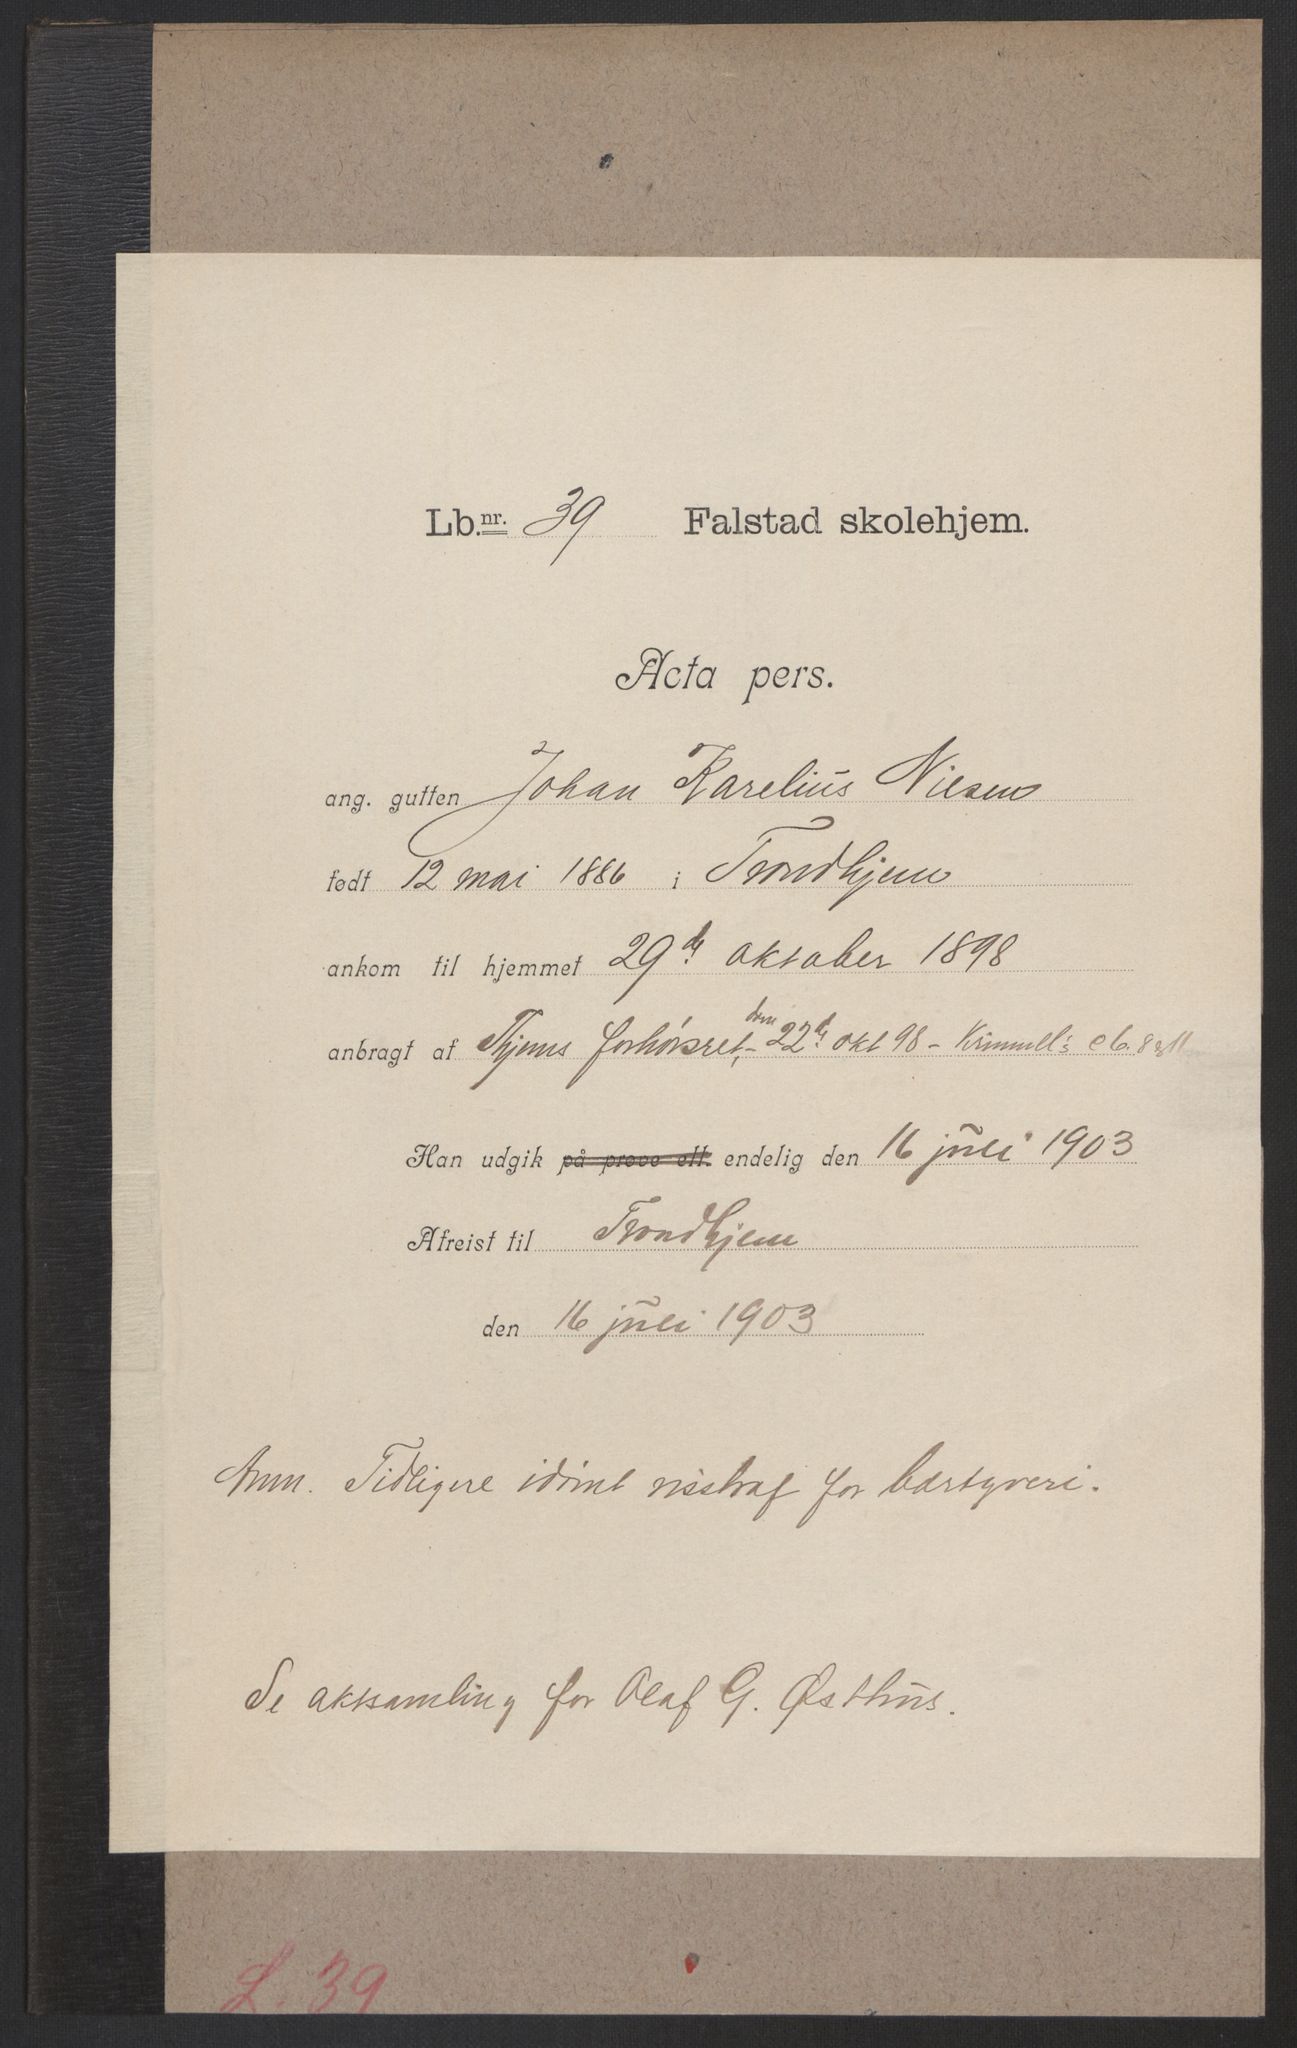 Lb.nr. 39 Falstad skolehjem.
Acta pers.
ang. gutten Johan Karelius Nilsen
født 12 mai 1886 i Trondhjem
ankom til hjemmet 29de oktober 1898
anbragt af Thjems forhørsret, - dom 22de okt 98 - Kriminall's
Han udgik på prøve ell. endelig den 16 juli 1903
Afreist til Trondhjem
den 16 juli 1903
Anm. Tidligere idømt risstraf for bærtyveri.
Se aktsamling for Olaf G. Østhus.
L. 39